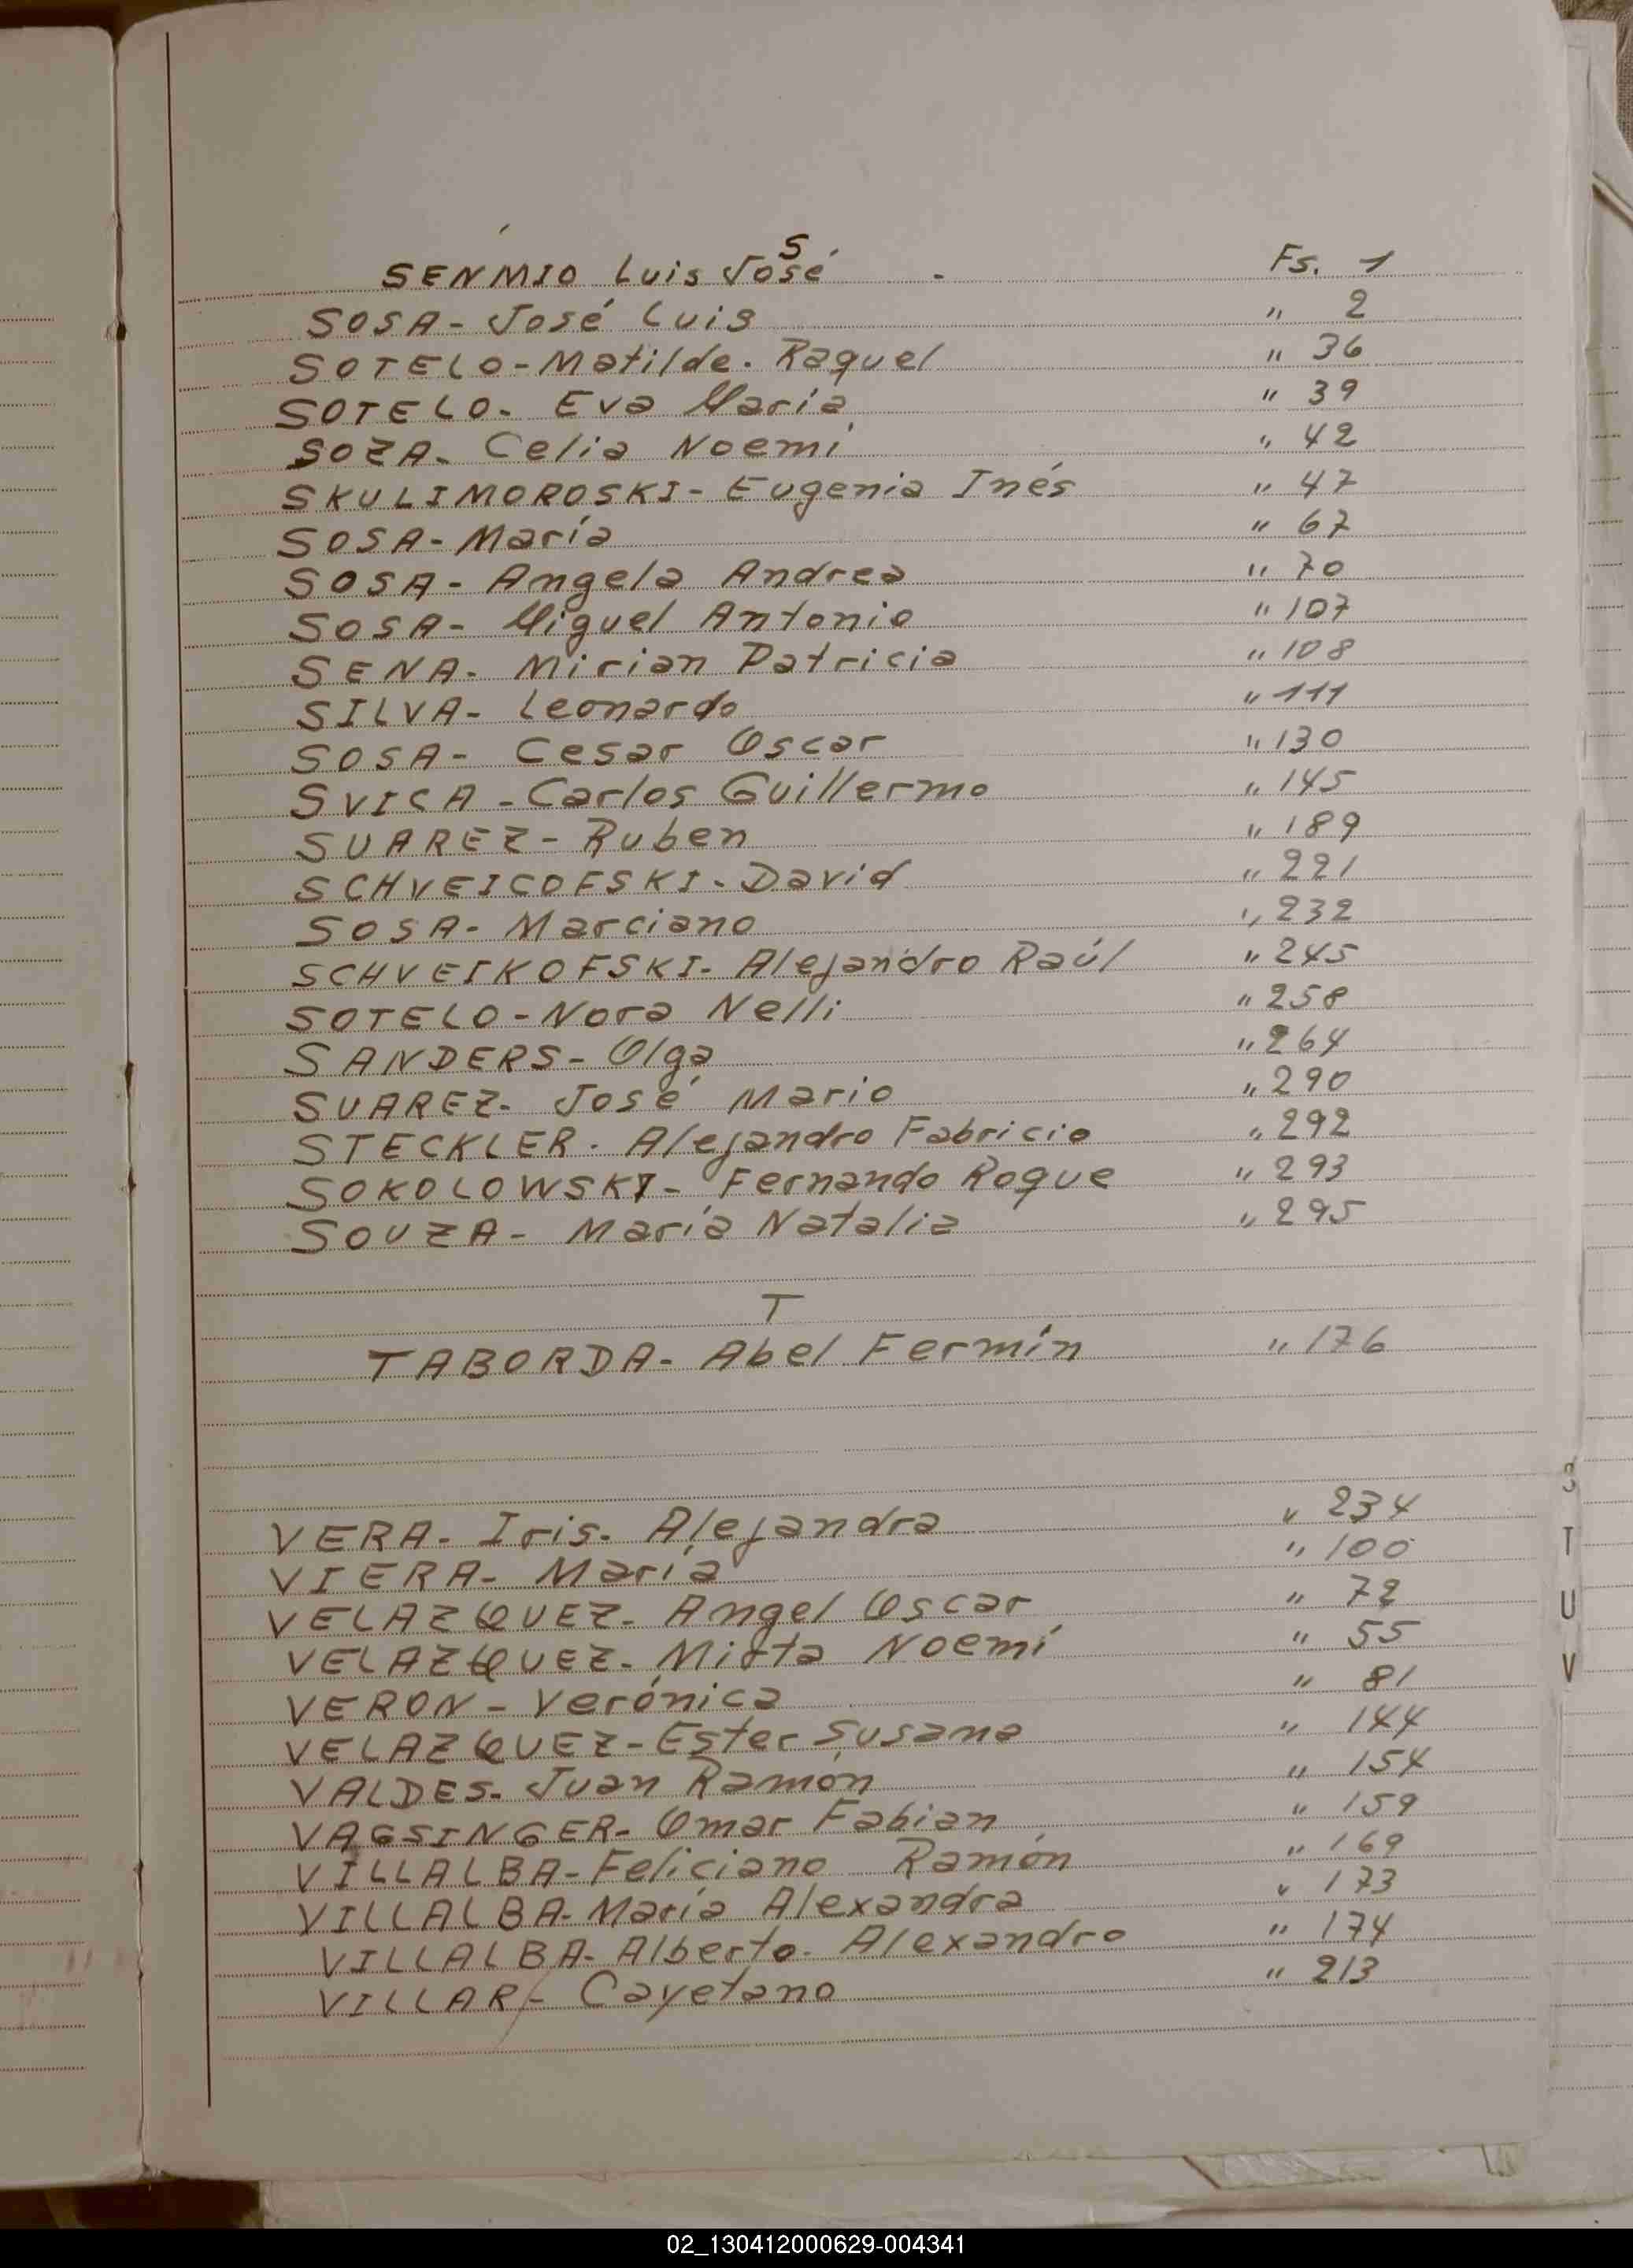 S
SENMIO Luis José - Fs. 1
SOSA - José Luis " 2
SOTELO - Matilde. Raquel " 36
SOTELO - Eva Maria " 39
SOZA - Celia Noemí " 42
SKULIMOROSKI - Eugenia Inés " 47
SOSA - María " 67
SOSA - Angela Andrea " 70
SOSA - Miguel Antonio " 107
SENA - Mirian Patricia " 108
SILVA - Leonardo " 111
SOSA - Cesar Oscar " 130
SVICA - Carlos Guillermo " 145
SUAREZ - Ruben " 189
SCHVEICOFSKI - David " 221
SOSA - Marciano " 232
SCHVEIKOFSKI - Alejandro Raúl " 245
SOTELO - Nora Nelli " 258
SANDERS - Olga " 264
SUAREZ - José Mario " 290
STECKLER - Alejandro Fabricio " 292
SOKOLOWSKI - Fernando Roque " 293
SOUZA - María Natalia " 295
T
TABORDA - Abel Fermín " 176
VERA - Iris - Alejandra " 234
VIERA - María " 100
VELAZQUEZ - Angel Oscar " 72
VELAZQUEZ - Mirta Noemí " 55
VERON - Verónica " 81
VELAZQUEZ - Ester Susana " 144
VALDES - Juan Ramón " 154
VAGSINGER - Omar Fabian " 159
VILLALBA - Feliciano Ramón " 169
VILLALBA - María Alexandra " 173
VILLALBA - Alberto - Alexandro " 174
VILLAR - Cayetano " 213
S
T
U
V
02_130412000629-004341